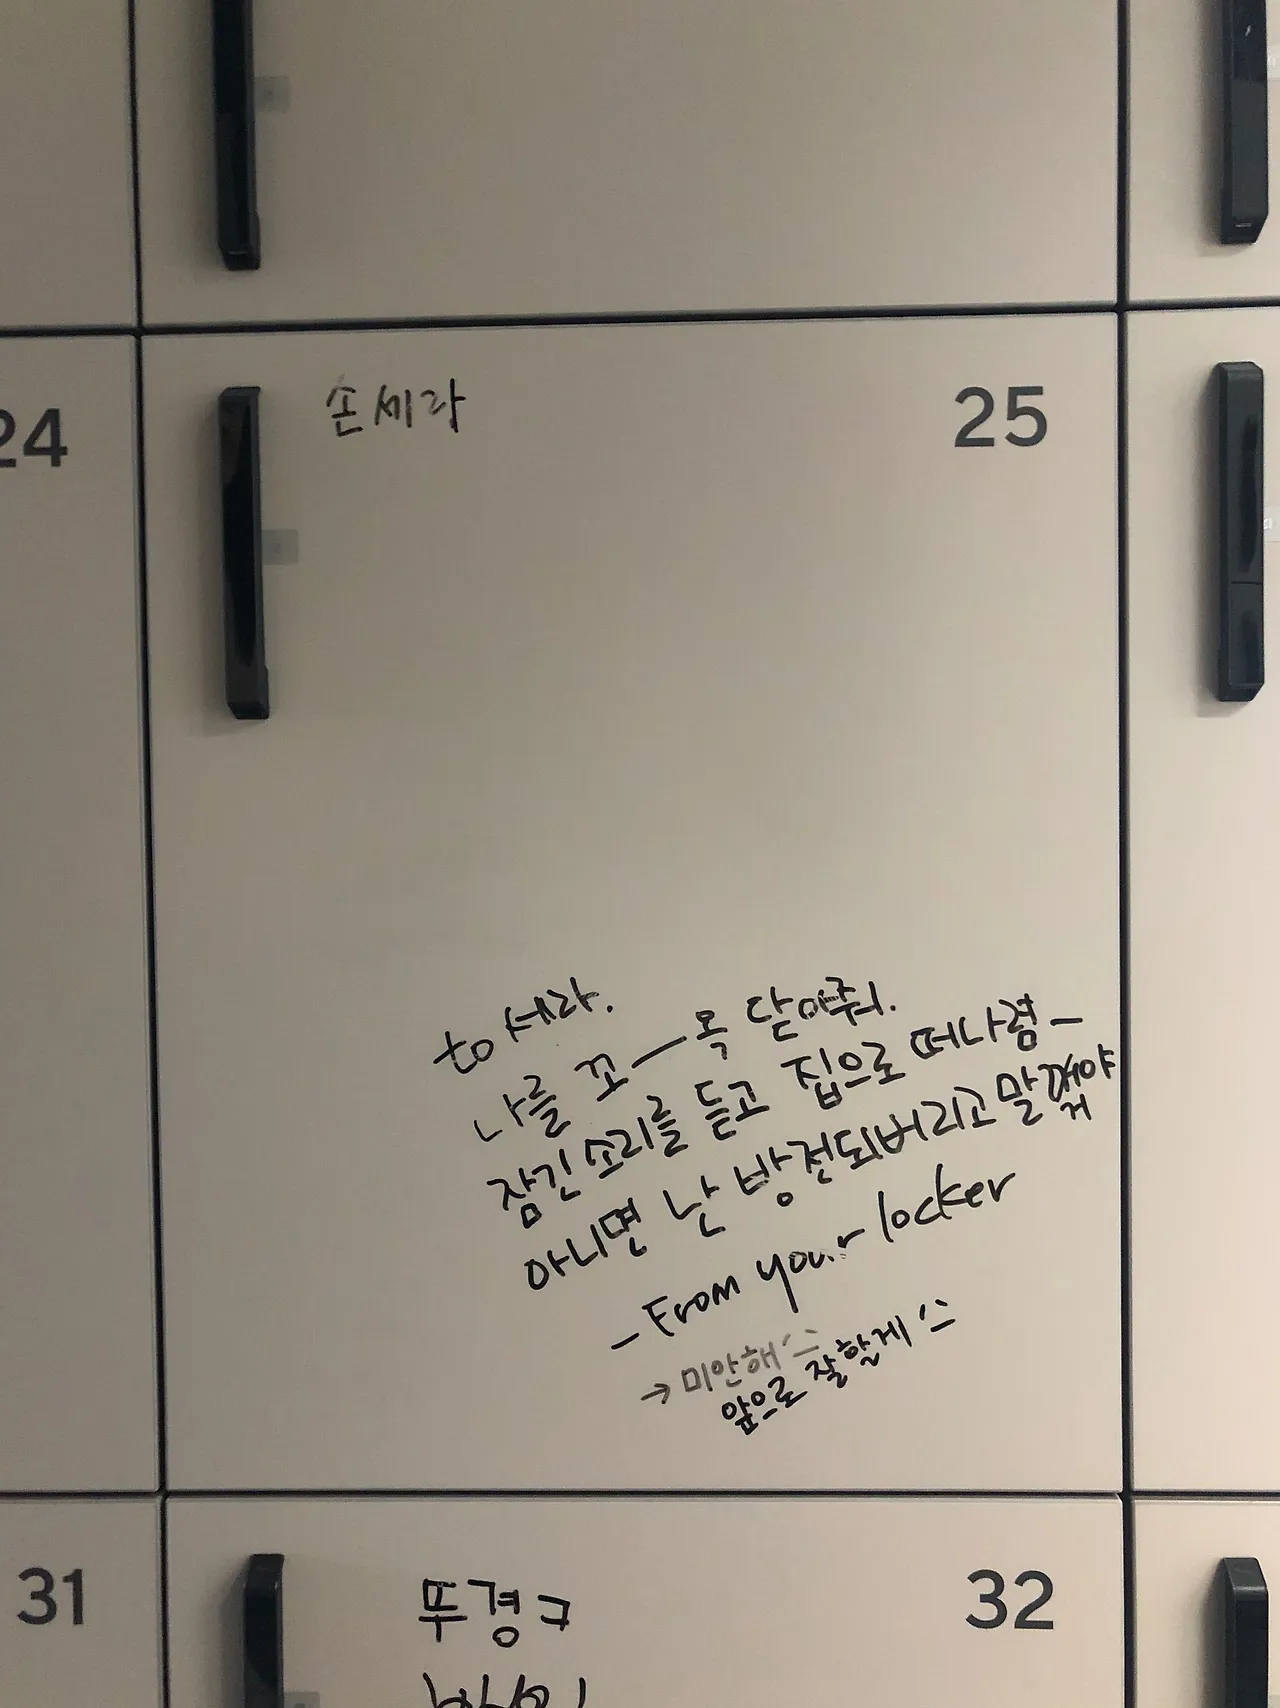 24
손세라
25
to 세라.
나를 꼬—옥 닫아줘.
잠긴 소리를 듣고 집으로 떠나렴—
아니면 난 방전되버리고 말
거야
- From your locker
→ 미안해^^
앞으로 잘할게^^
31
뚜경ㅋ
32